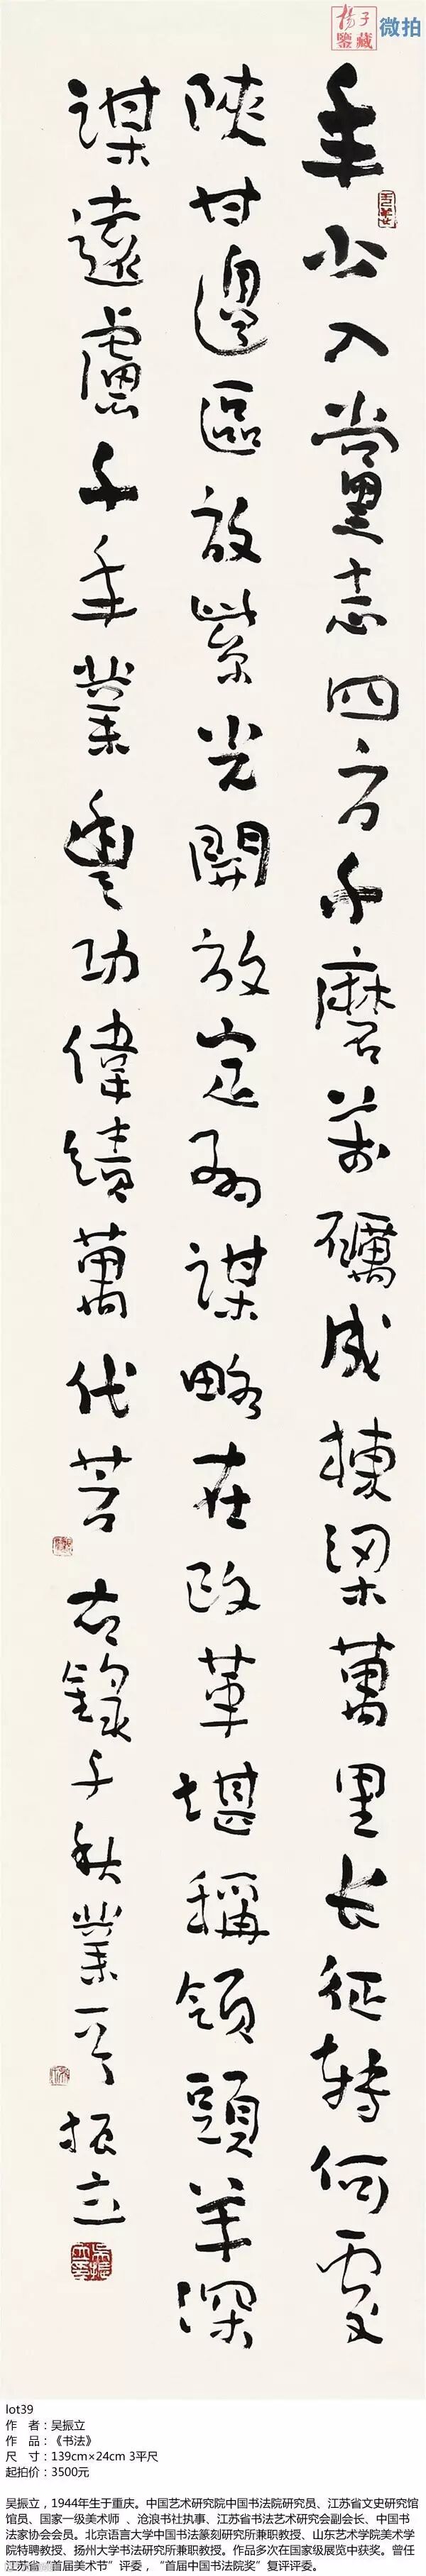 揚子
鑒藏
微拍
年少入黨志四方千磨萬礪成棟梁萬里长征轉何處
陝甘邊區放紫光開放定謀略在改革堪稱領頭羊深
謀遠慮千年業豐功偉績萬代芳 右錄千秋業一首 振立
lot39
作 者：吴振立
作 品：《书法》
尺 寸：139cm×24cm 3平尺
起拍价：3500元
吴振立，1944年生于重庆。中国艺术研究院中国书法院研究员、江苏省文史研究馆
馆员、国家一级美术师 、沧浪书社执事、江苏省书法艺术研究会副会长、中国书
法家协会会员。北京语言大学中国书法篆刻研究所兼职教授、山东艺术学院美术学
院特聘教授、扬州大学书法研究所兼职教授。作品多次在国家级展览中获奖。曾任
江苏省“首届美术节”评委，“首届中国书法院奖”复评评委。